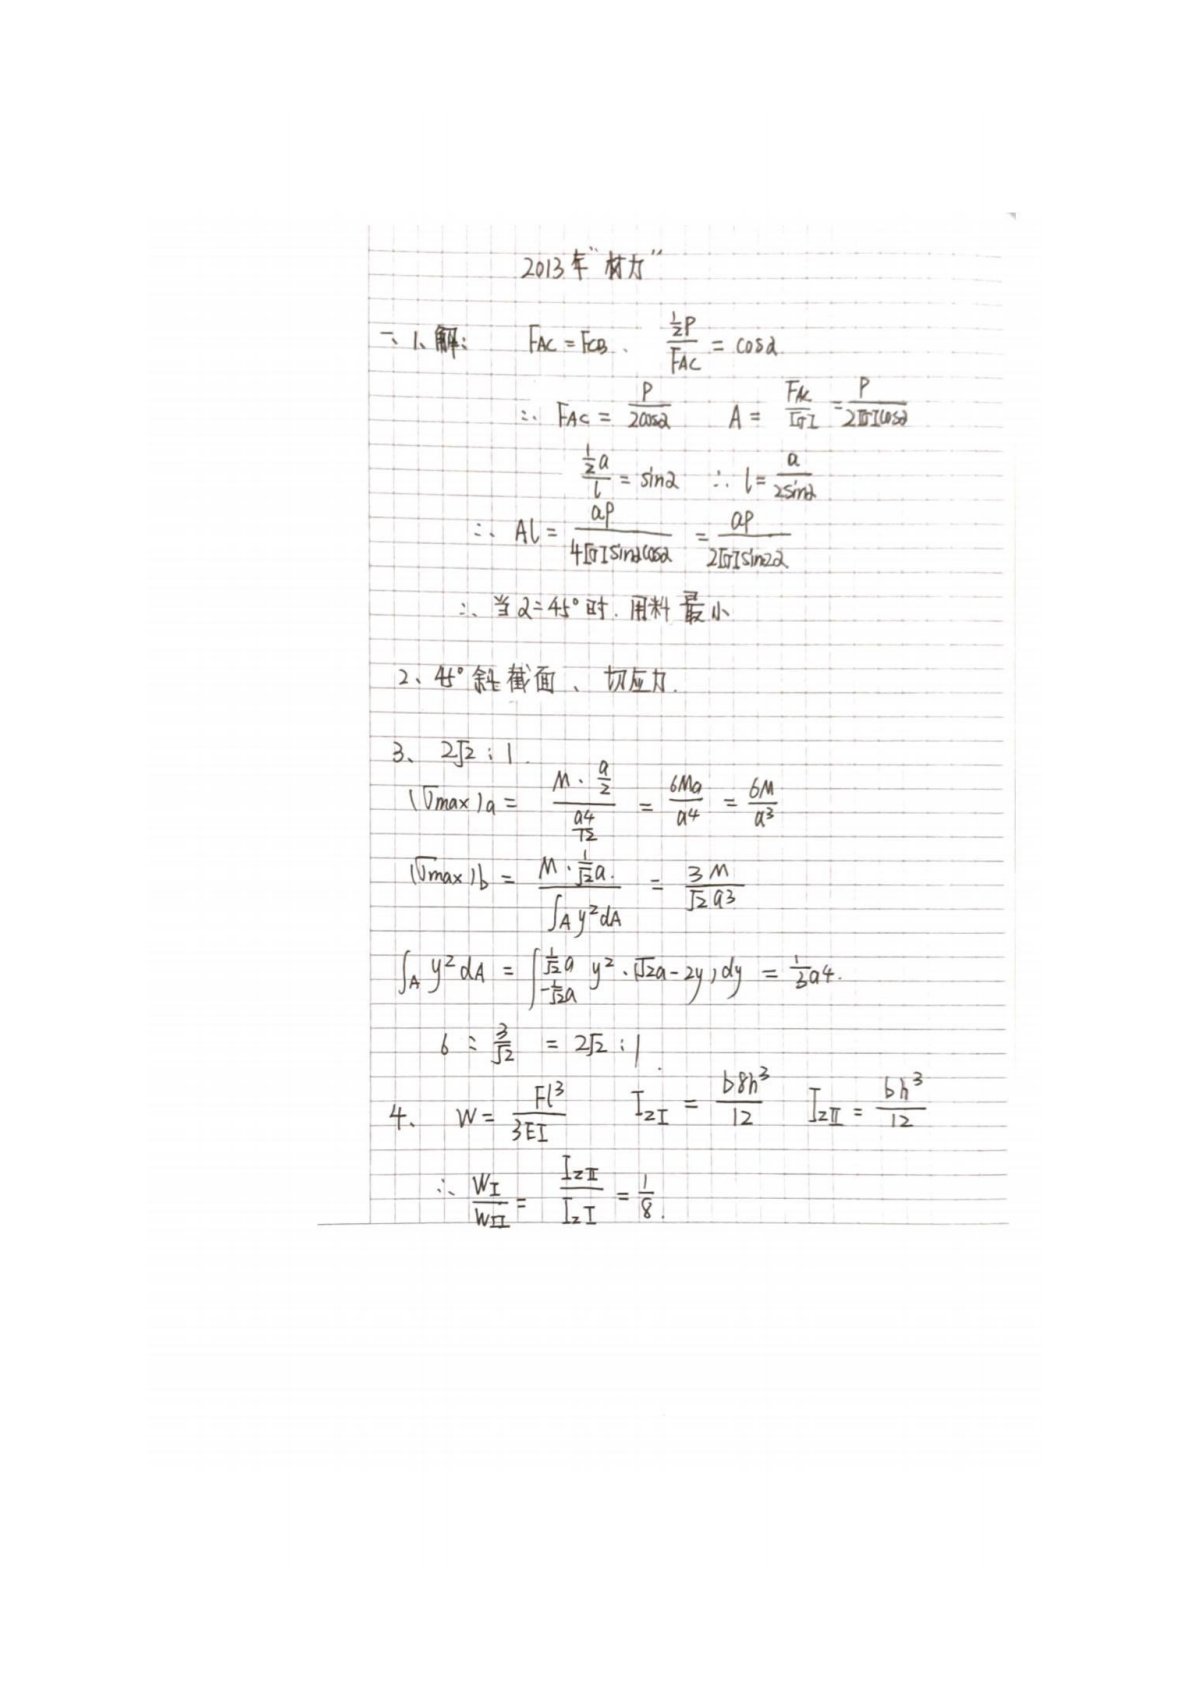 2013年“材力”
一、1、解: F_AC = F_CB、 \frac{\frac{1}{2}P}{F_AC} = cosα
∴ F_AC = \frac{P}{2cosα} A = \frac{F_AC}{[σ]} = \frac{P}{2[σ]cosα}
\frac{\frac{1}{2}a}{l} = sinα ∴ l = \frac{a}{2sinα}
∴ Al = \frac{aP}{4[σ]sinαcosα} = \frac{aP}{2[σ]sin2α}
∴ 当α=45°时. 用料最小
2、45°斜截面、切应力.
3、 2√2 : 1.
(σmax)a = \frac{M · \frac{a}{2}}{\frac{a^4}{12}} = \frac{6Ma}{a^4} = \frac{6M}{a^3}
(σmax)b = \frac{M · \frac{1}{√2}a.}{∫_A y^2 dA} = \frac{3M}{√2 a^3}
∫_A y^2 dA = ∫_{-\frac{1}{√2}a}^{\frac{1}{√2}a} y^2 · (√2a - 2y) dy = \frac{1}{3}a^4.
6 : \frac{3}{√2} = 2√2 : 1.
4、 W = \frac{Fl^3}{3EI} I_{zI} = \frac{b8h^3}{12} I_{zII} = \frac{bh^3}{12}
∴ \frac{W_I}{W_{II}} = \frac{I_{zII}}{I_{zI}} = \frac{1}{8}.